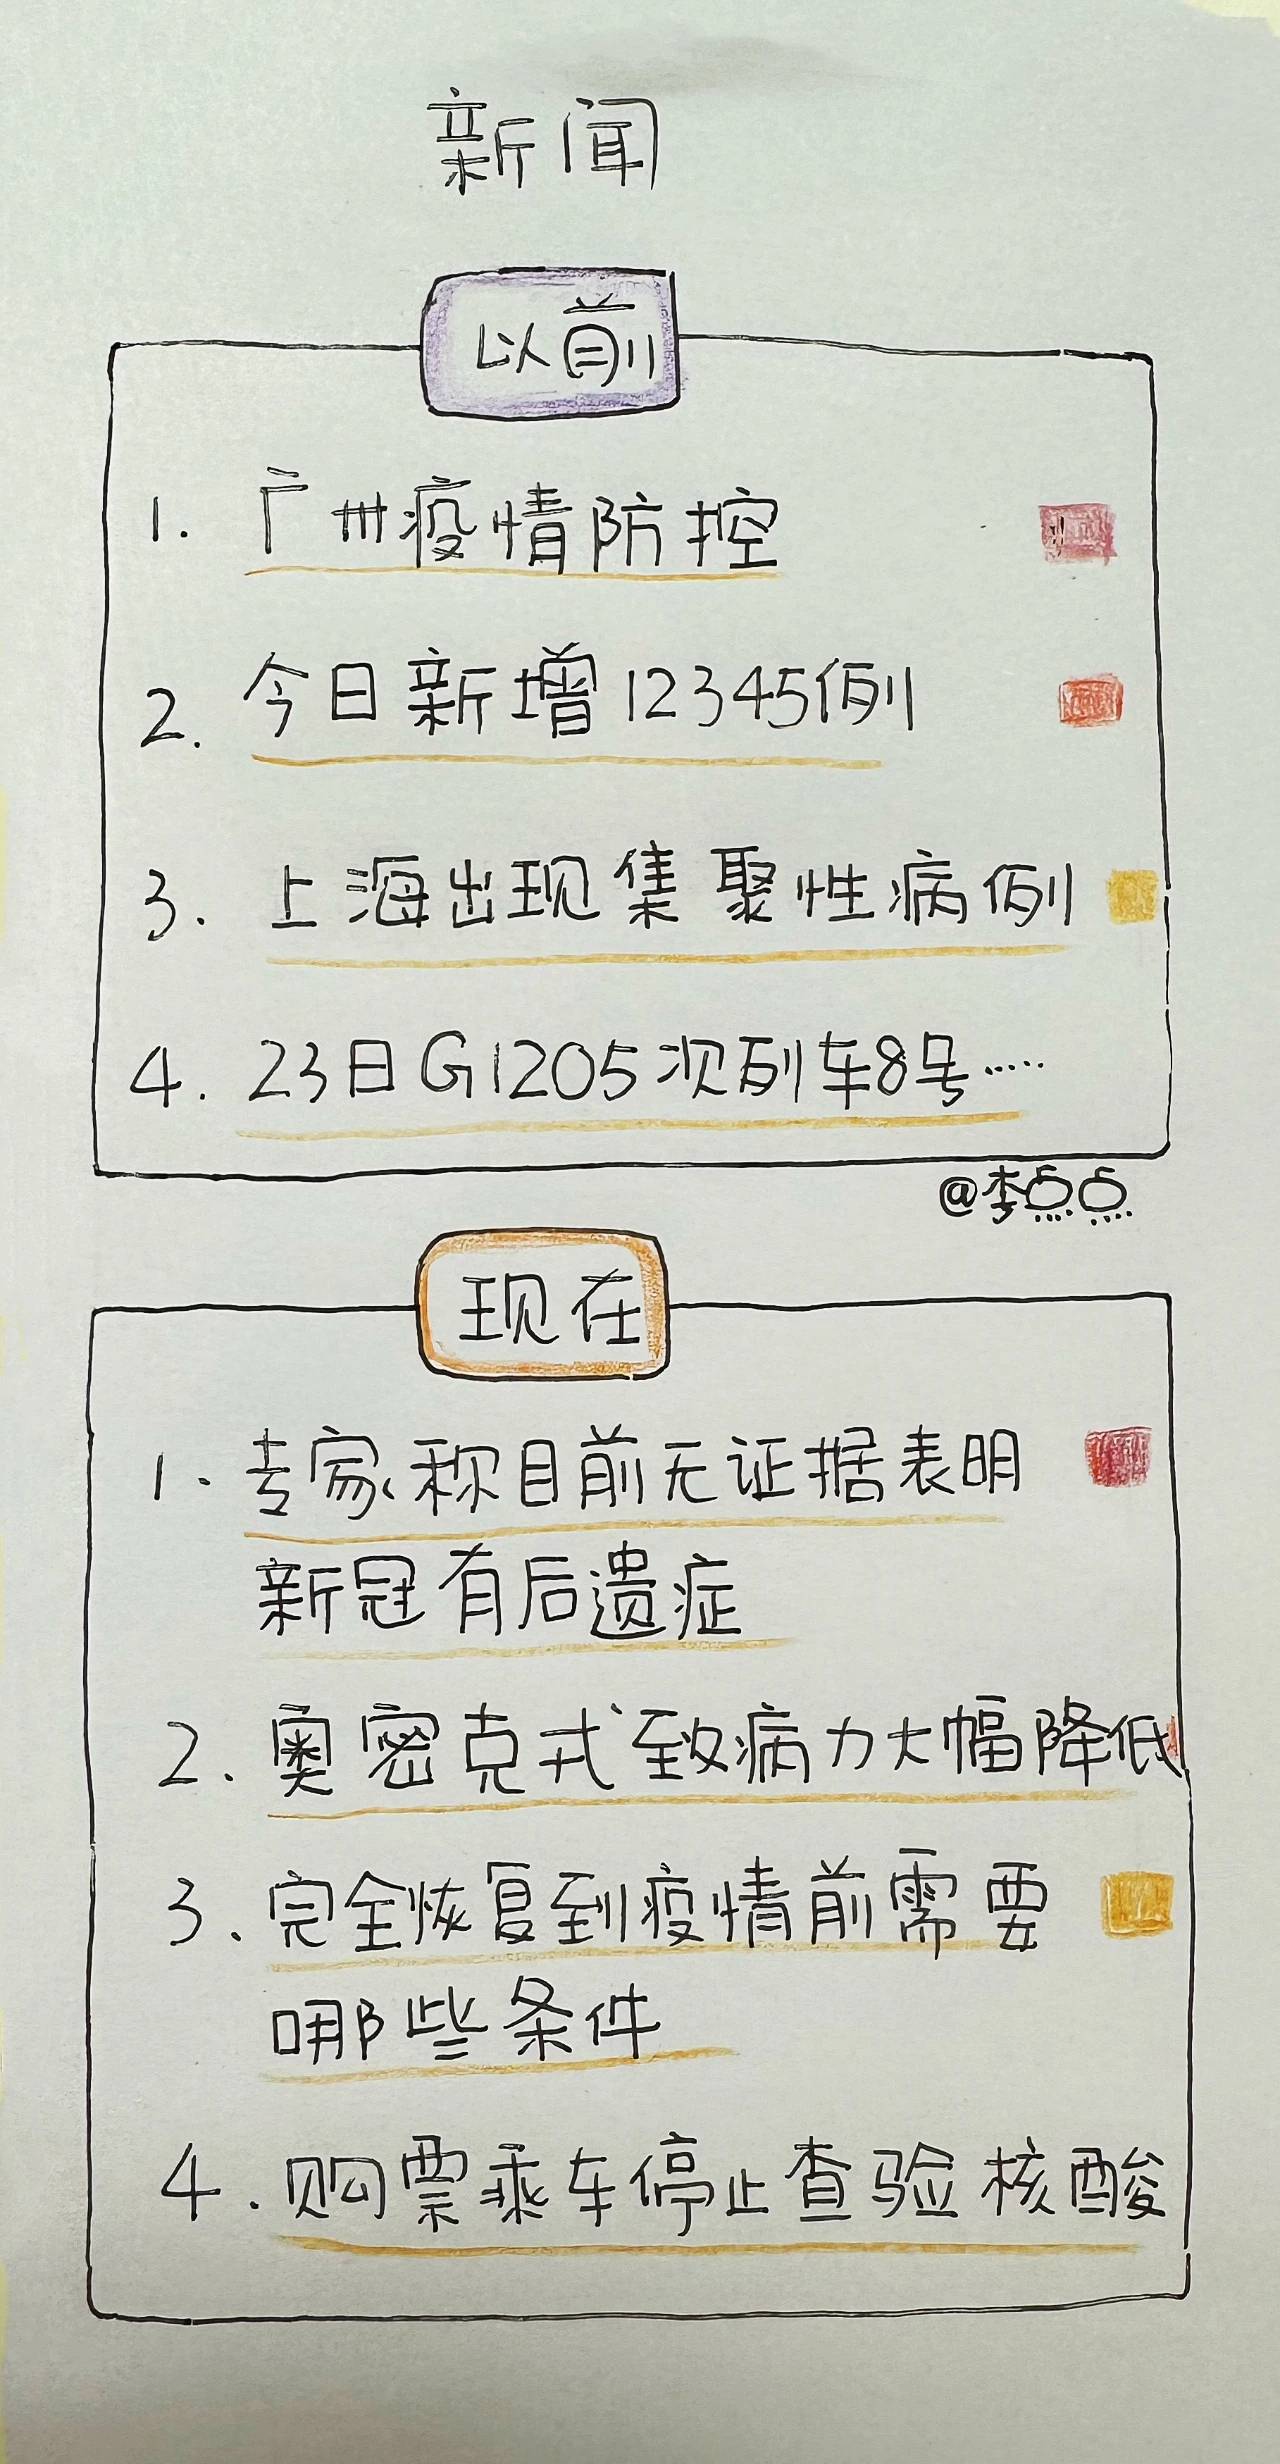 新闻
以前
1. 广州疫情防控
2. 今日新增12345例
3. 上海出现集聚性病例
4. 23日G1205次列车8号……
@李点点
现在
1. 专家称目前无证据表明
新冠有后遗症
2. 奥密克戎致病力大幅降低
3. 完全恢复到疫情前需要
哪些条件
4. 购票乘车停止查验核酸